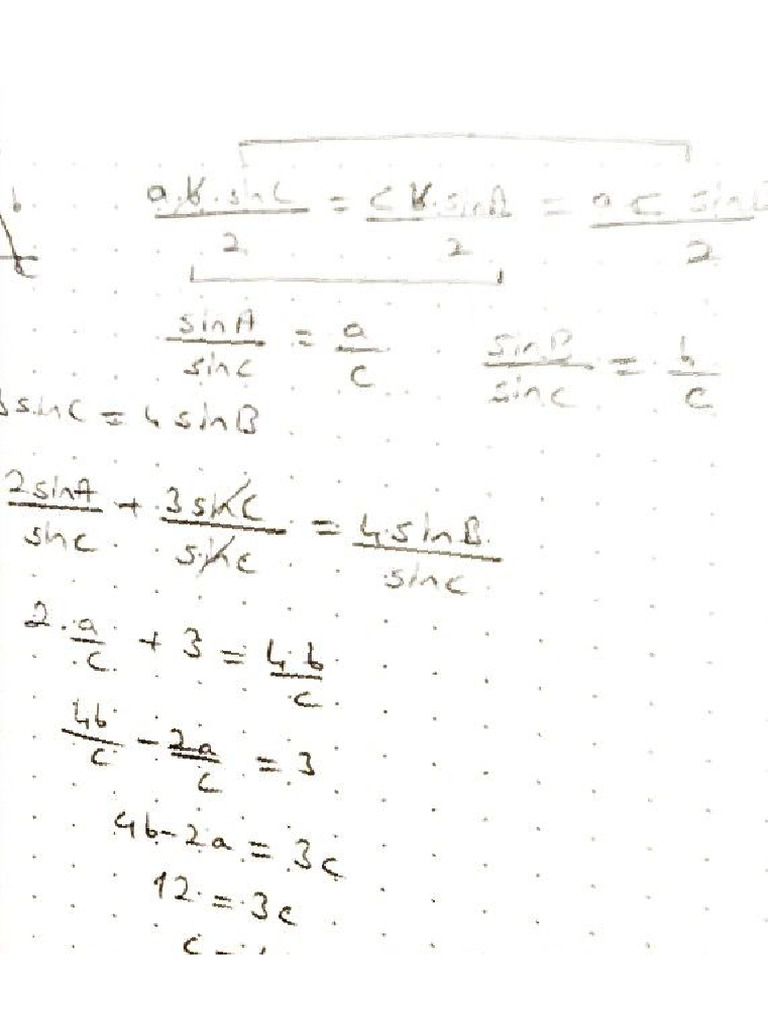 b
c
a.b.sinC/2 = c b.sinA/2 = a c sinB/2
sinA/sinC = a/c sinB/sinC = b/c
3sinC = 4sinB
2sinA/sinC + 3sinC/sinC = 4.sinB/sinC
2.a/c + 3 = 4.b/c
4b/c - 2a/c = 3
4b-2a = 3c
12 = 3c